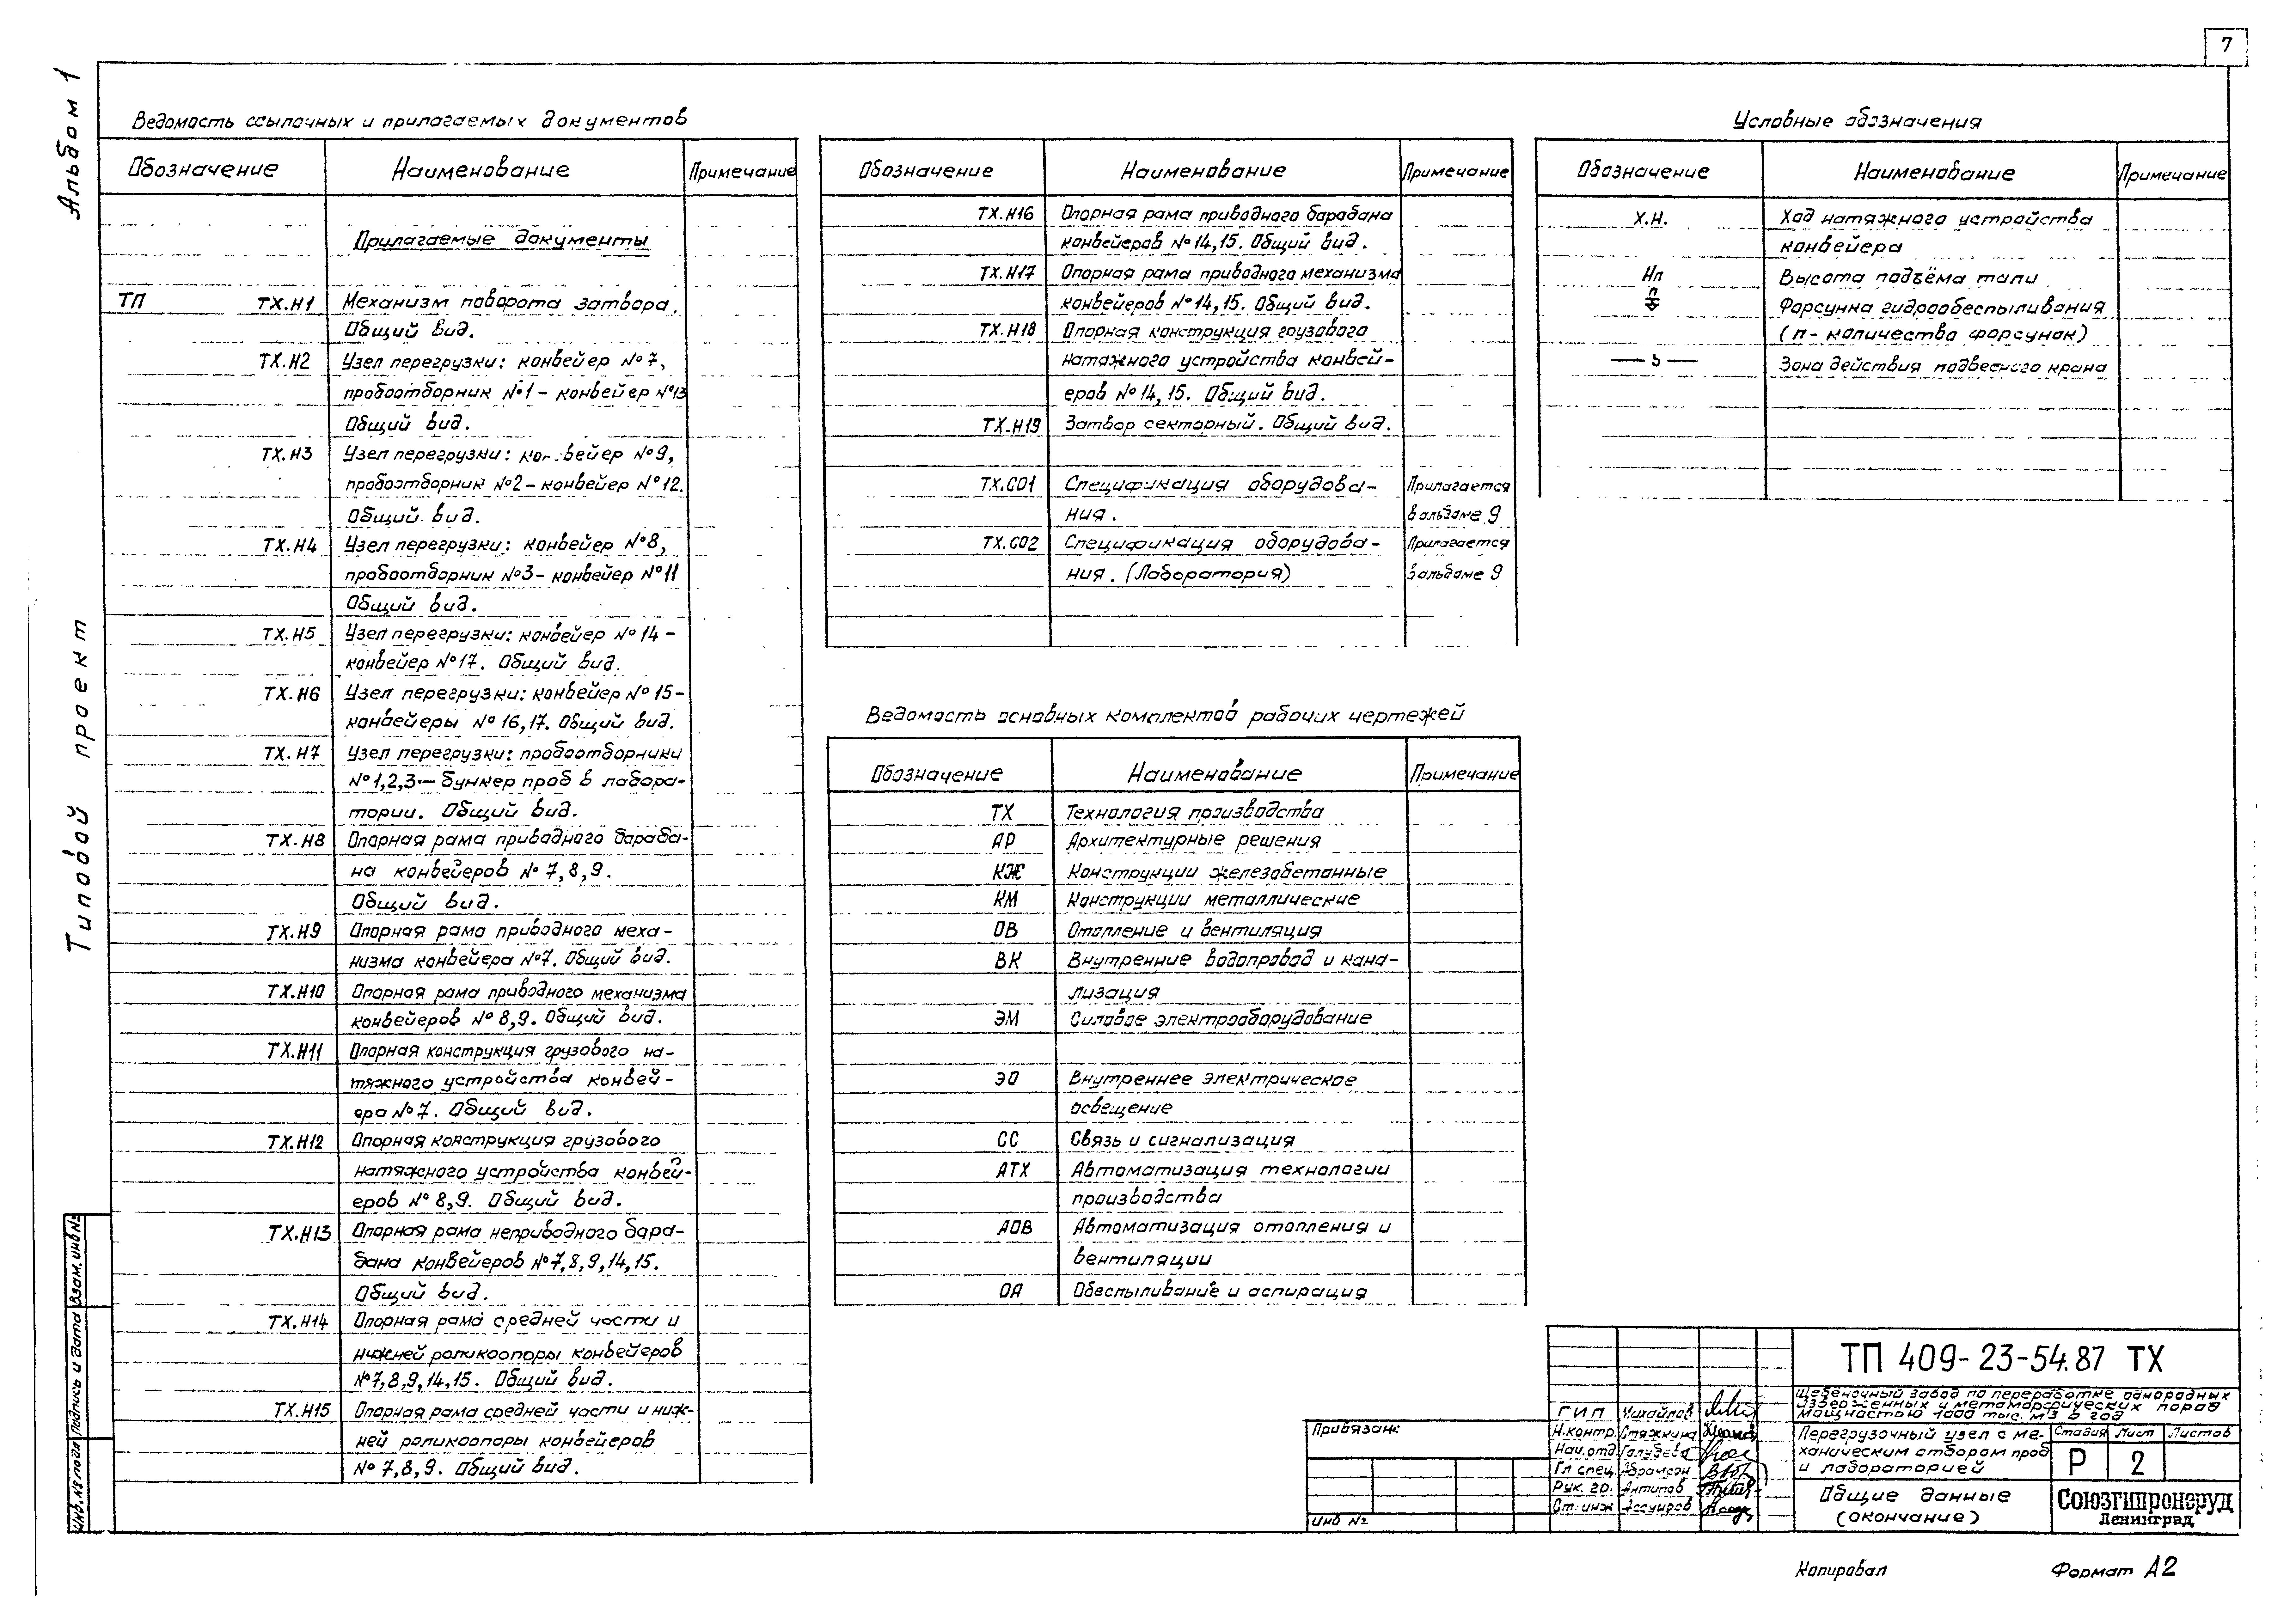 7
Альбом 1
Типовой проект
Ведомость ссылочных и прилагаемых документов
Обозначение Наименование Примечание
Прилагаемые документы
ТП ТХ.Н1 Механизм поворота затвора.
Общий вид.
ТХ.Н2 Узел перегрузки: конвейер №7,
пробоотборник №1 – конвейер №13
Общий вид.
ТХ.Н3 Узел перегрузки: конвейер №9,
пробоотборник №2 – конвейер №12.
Общий вид.
ТХ.Н4 Узел перегрузки: конвейер №8,
пробоотборник №3 – конвейер №11
Общий вид.
ТХ.Н5 Узел перегрузки: конвейер №14 –
конвейер №17. Общий вид.
ТХ.Н6 Узел перегрузки: конвейер №15 –
конвейеры №16,17. Общий вид.
ТХ.Н7 Узел перегрузки: пробоотборники
№1,2,3 – бункер проб в лабора-
тории. Общий вид.
ТХ.Н8 Опорная рама приводного бараба-
на конвейеров №7,8,9.
Общий вид.
ТХ.Н9 Опорная рама приводного меха-
низма конвейера №7. Общий вид.
ТХ.Н10 Опорная рама приводного механизма
конвейеров №8,9. Общий вид.
ТХ.Н11 Опорная конструкция грузового на-
тяжного устройства конвей-
ера №7. Общий вид.
ТХ.Н12 Опорная конструкция грузового
натяжного устройства конвей-
еров №8,9. Общий вид.
ТХ.Н13 Опорная рама неприводного бара-
бана конвейеров №7,8,9,14,15.
Общий вид.
ТХ.Н14 Опорная рама средней части и
нижней роликоопоры конвейеров
№7,8,9,14,15. Общий вид.
ТХ.Н15 Опорная рама средней части и ниж-
ней роликоопоры конвейеров
№7,8,9. Общий вид.
Обозначение Наименование Примечание
ТХ.Н16 Опорная рама приводного барабана
конвейеров №14,15. Общий вид.
ТХ.Н17 Опорная рама приводного механизма
конвейеров №14,15. Общий вид.
ТХ.Н18 Опорная конструкция грузового
натяжного устройства конвей-
еров №14,15. Общий вид.
ТХ.Н19 Затвор секторный. Общий вид.
ТХ.СО1 Спецификация оборудова- Прилагается
ния. в альбоме 9
ТХ.СО2 Спецификация оборудова- Прилагается
ния. (Лаборатория) в альбоме 9
Ведомость основных комплектов рабочих чертежей
Обозначение Наименование Примечание
ТХ Технология производства
АР Архитектурные решения
КЖ Конструкции железобетонные
КМ Конструкции металлические
ОВ Отопление и вентиляция
ВК Внутренние водопровод и кана-
лизация
ЭМ Силовое электрооборудование
ЭО Внутреннее электрическое
освещение
СС Связь и сигнализация
АТХ Автоматизация технологии
производства
АОВ Автоматизация отопления и
вентиляции
ОА Обеспыливание и аспирация
Условные обозначения
Обозначение Наименование Примечание
Х.Н. Ход натяжного устройства
конвейера
Нп Высота подъёма тали
п Форсунка гидрообеспыливания
(п – количество форсунок)
Зона действия подвесного крана
Взам. инв №
Подпись и дата
Инв. № подл
Привязан:
Инв №
ГИП Михайлов
Н.контр. Стяжкина
Нач. отд. Голубева
Гл спец. Абрамсон
Рук. гр. Антипов
Ст. инж.
ТП 409-23-54.87 ТХ
Щебёночный завод по переработке однородных
изверженных и метаморфических пород
мощностью 1000 тыс. м3 в год
Перегрузочный узел с ме-
ханическим отбором проб
и лабораторией
Стадия Лист Листов
Р 2
Общие данные
(окончание)
Союзгипронеруд
Ленинград
Копировал Формат А2